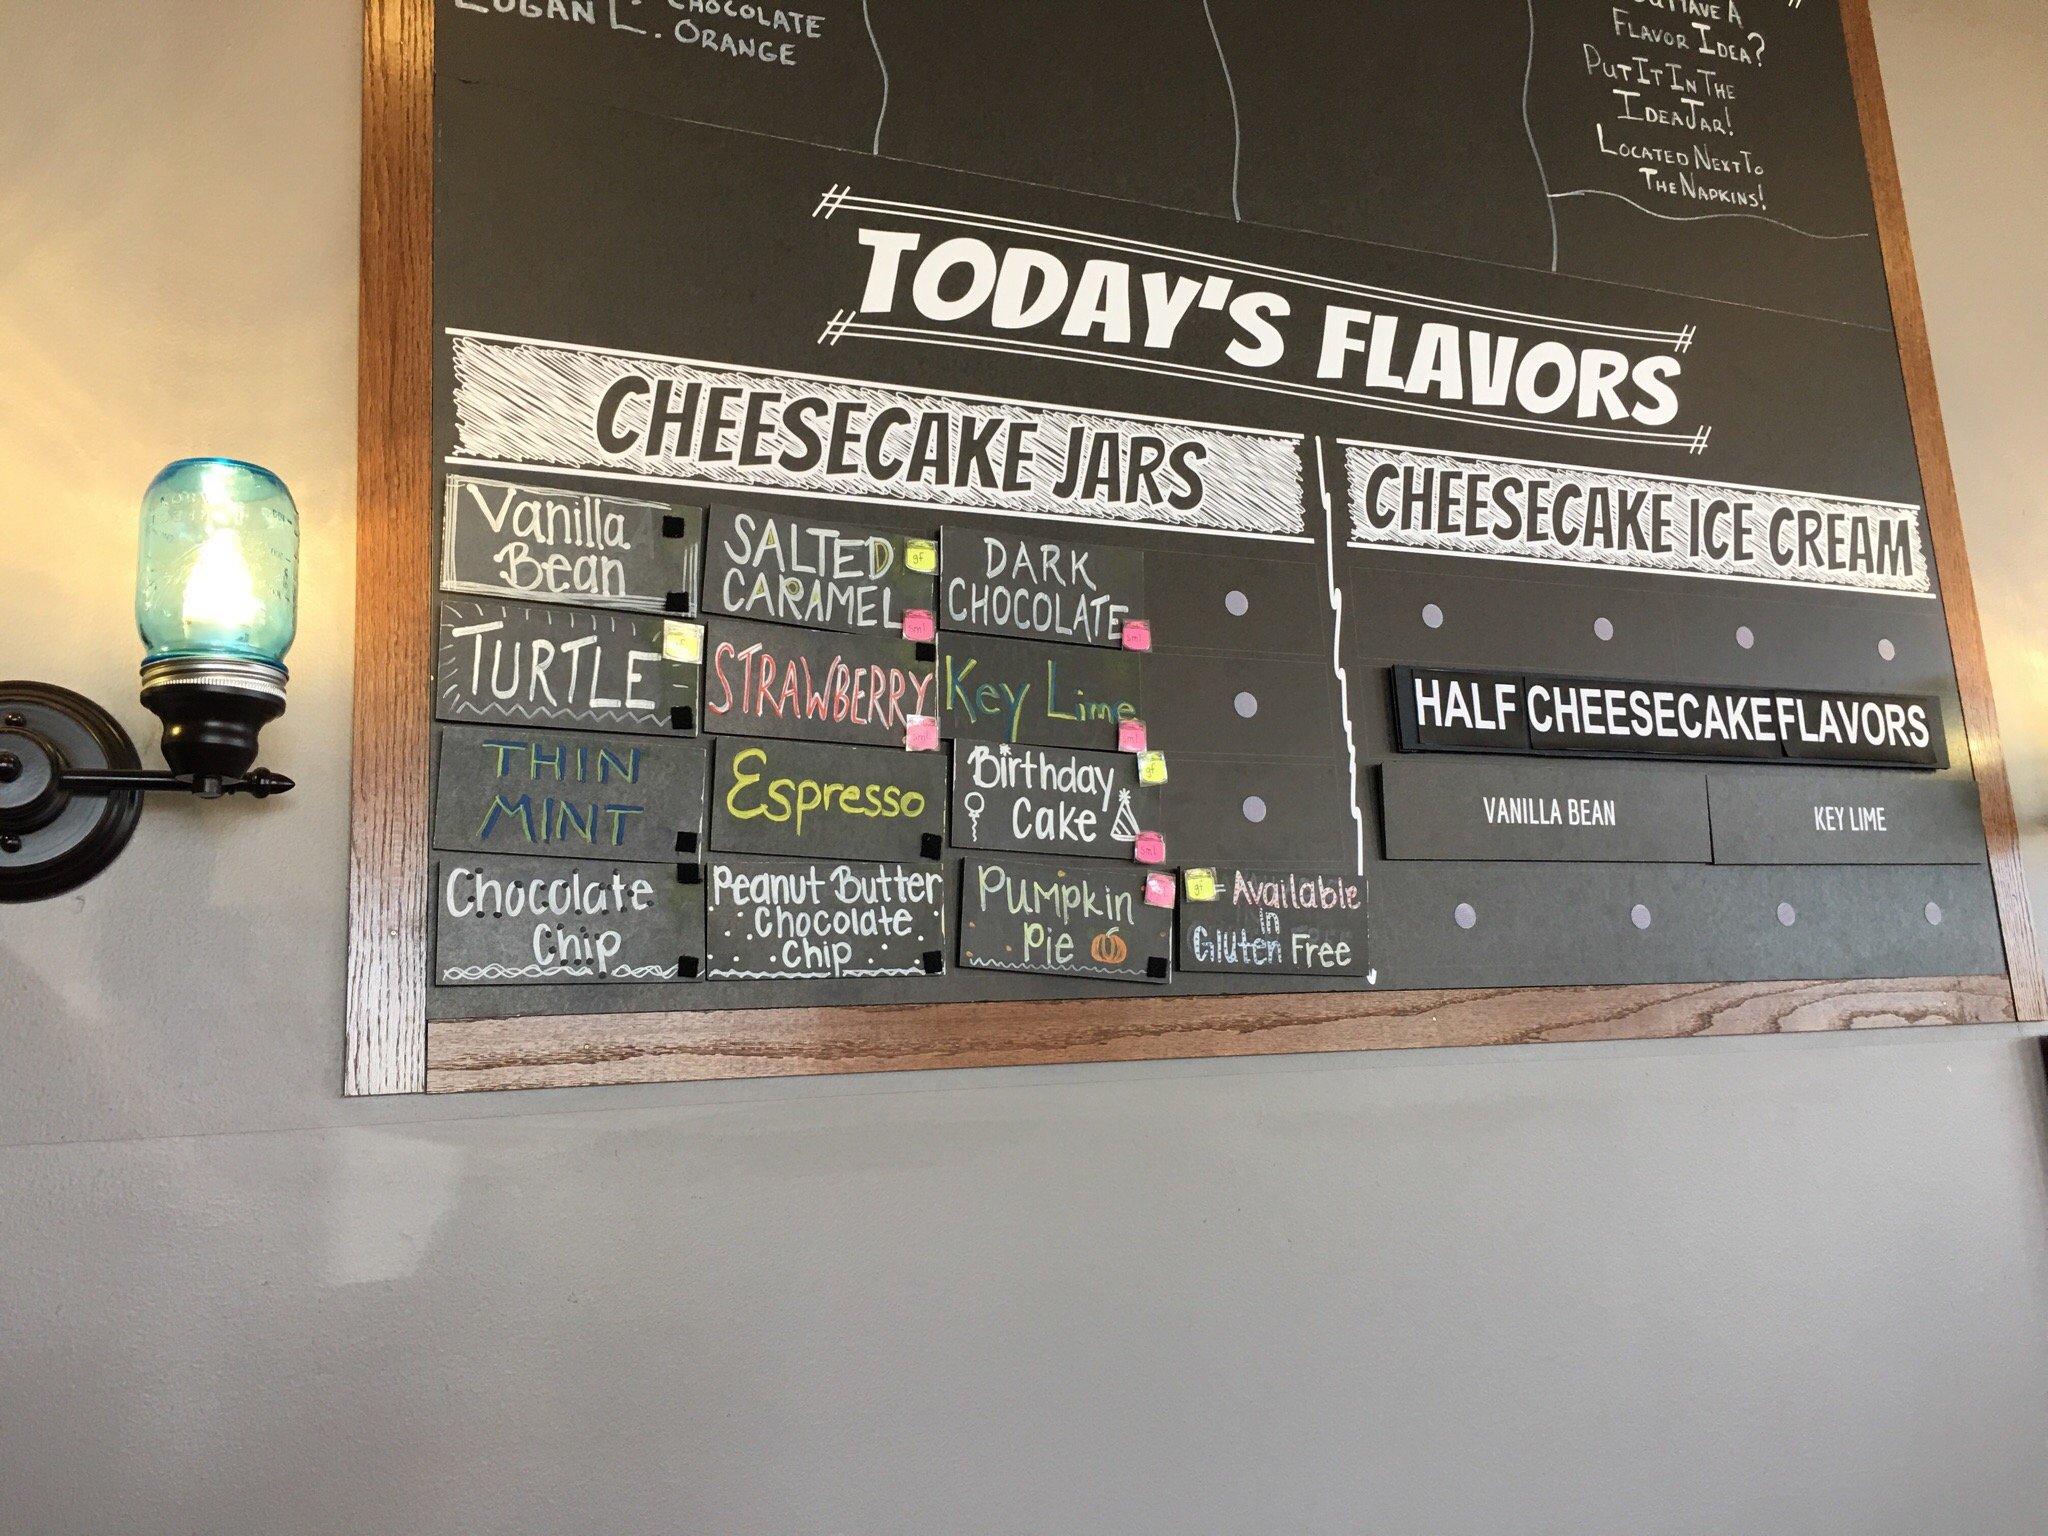 CHOCOLATE
LOGAN L. ORANGE
HAVE A
FLAVOR IDEA?
PUT IT IN THE
IDEA JAR!
LOCATED NEXT TO
THE NAPKINS!
TODAY'S FLAVORS
CHEESECAKE JARS
Vanilla
Bean
SALTED
CARAMEL
gf
sml
DARK
CHOCOLATE
sml
TURTLE
STRAWBERRY
sml
Key Lime
sml
THIN
MINT
Espresso
Birthday
Cake
gf
sml
Chocolate
Chip
Peanut Butter
Chocolate
Chip
Pumpkin
Pie
gf = Available
in
Gluten Free
CHEESECAKE ICE CREAM
HALF CHEESECAKE FLAVORS
VANILLA BEAN
KEY LIME